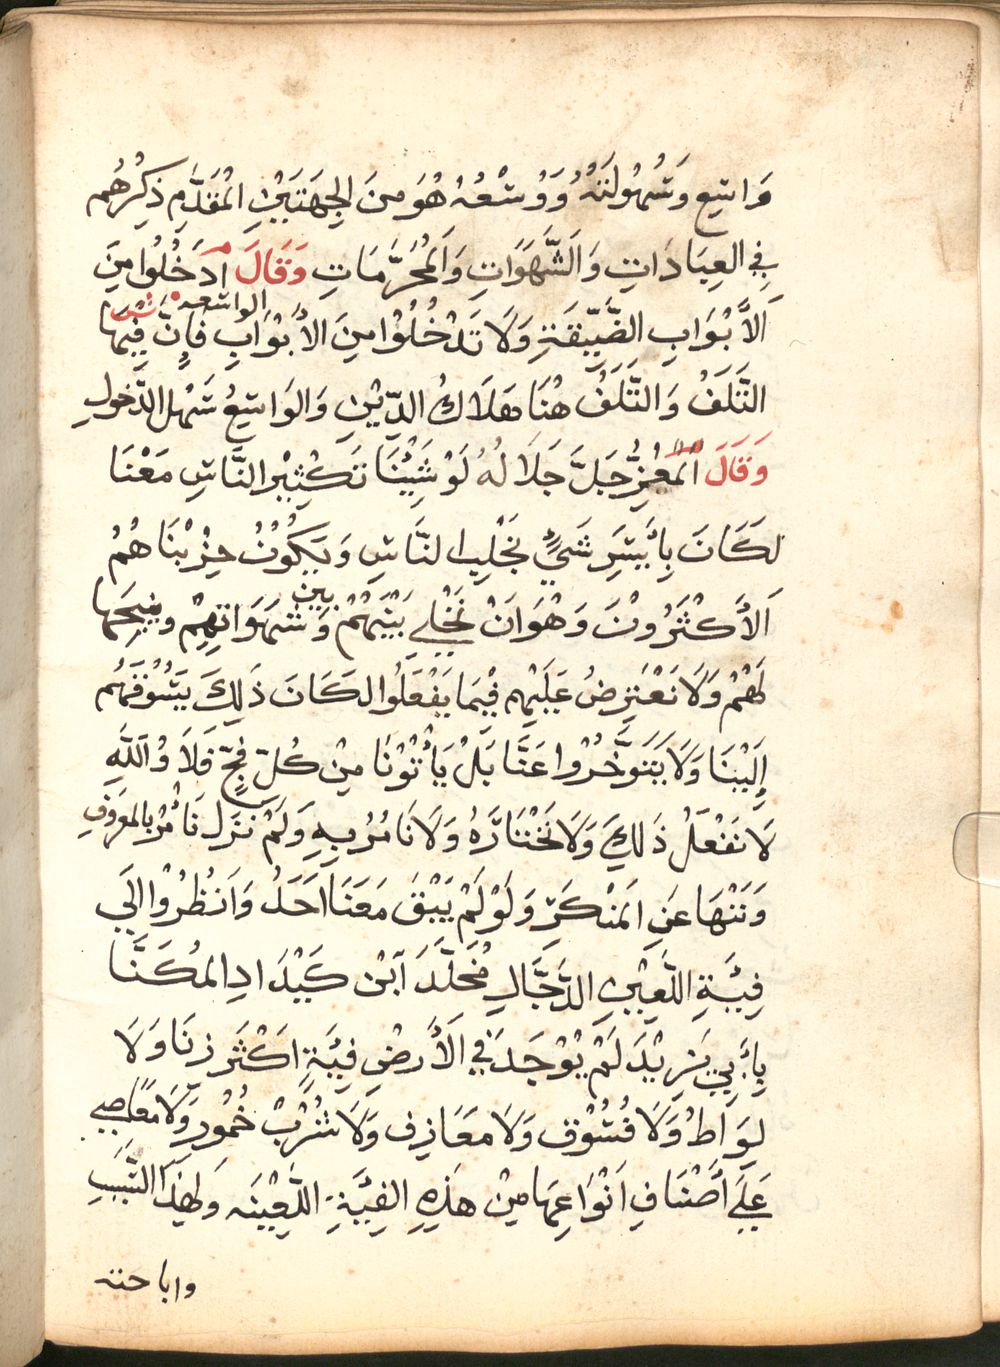 وَاسِعٍ وَسُهُولَتُهُ وَوُسْعُهُ هُوَ مِنَ الجِهَتَيْنِ الْمُقَدَّمِ ذِكْرُهُم
فِي العِبَادَاتِ وَالشَّهَوَاتِ وَالْمُحَرَّمَاتِ وَقَالَ ادْخُلُوا مِنَ
الأَبْوَابِ الضَّيِّقَةِ وَلَا تَدْخُلُوْا مِنَ الأَبْوَابِ الواسعه فَإِنَّ فِيْهَا
التَّلَفُ وَالتَّلَفُ هُنَا هَلَاكُ الدِّيْنِ وَالوَاسِعُ سَهْلُ الدُّخُولِ
وَقَالَ الْمُعِزُّ جَلَّ جَلَالُهُ لَوْ شَيْئْنَا تَكْثِيْرَ النَّاسِ مَعْنَا
لَكَانَ بِأَيْسَرِ شَيْءٍ نَجْلِبُ النَّاسِ وَيَكُوْنُ حِزْبُنَا هُمُ
الأَكْثَرُوْنَ وَهُوَ انْ نَخْلِي بَيْنَهُمْ وَبين شَهَوَاتِهِمْ ونبيحها
لَهُمْ وَلَا نَعْتَرِضُ عَلَيْهِم فِيْمَا يَفْعَلُوا لَكَانَ ذَلِكَ يَسُوْقُهُم
إِلَيْنَا وَلَا يَتَوَخَّرُوْا عَنَّا بَلْ يَأْتُوْنَا مِنْ كُلِّ فَجٍّ فَلَا وَاللَّهِ
لَا نَفْعَلْ ذَلِكَ وَلَا نَخْتَارَهُ وَلَا نَامُرُ بِهِ وَلَمْ نَزَل نَأْمُرْ بالمَعرُوفِ
وَنَنْهَا عَنِ الْمُنْكَرِ وَلَوْ لَمْ يَبْقَ مَعَنَا احَدٌ وَانْظُرُوْا الَي
فِيْئَةِ اللَّعِيْنِ الدَّجَّالِ مُخَلَّدَ ابْن كَيْدَادِ المُكَنَّا
بِأَبِي يَزِيْدَ لَمْ يُوْجَدَ فِي الأَرْضِ فِيْئَةٍ اكْثَر زِنَا وَلَا
لِوَاطْ وَلَا فُسُوْق وَلَا مَعَازِف وَلَا شُرْبُ خُمُورٍ وَلَا مَعَاصِي
عَلَى أَصْنَافِ انْوَاعِهَا مِنْ هَذِهِ الفِيْئَةِ اللَّعِيْنَه وَلِهَذَا السَّبَبِ
واباحته